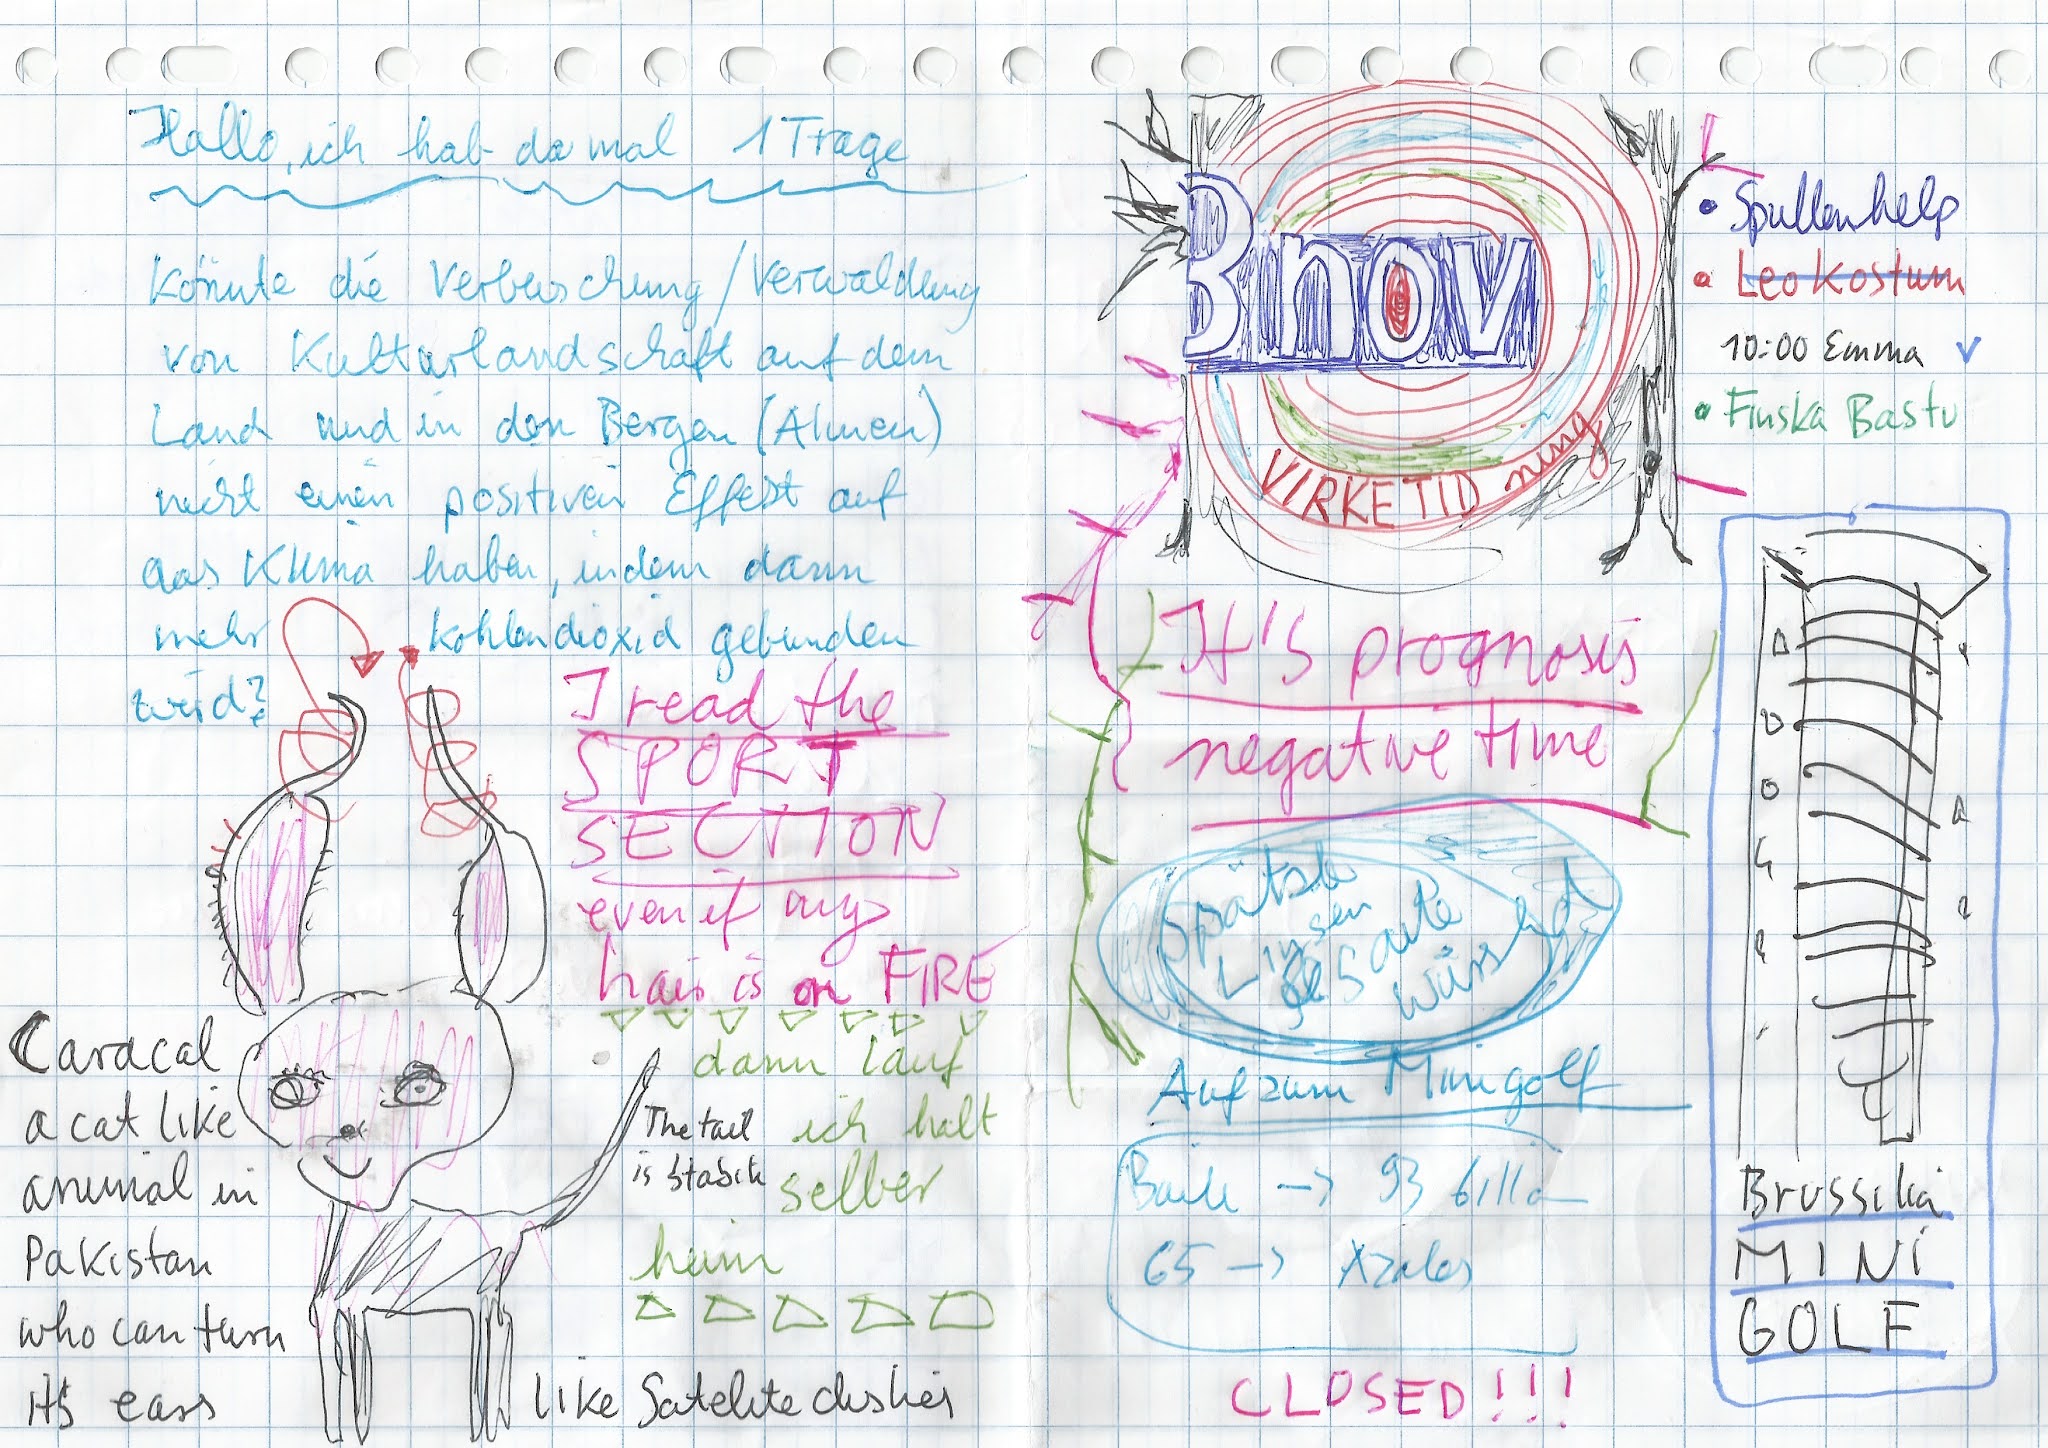 Hallo, ich hab da mal 1 Frage
Könnte die Verbuschung/Verwaldung
von Kulturlandschaft auf dem
Land und in den Bergen (Almen)
nicht einen positiven Effekt auf
das Klima haben, indem dann
mehr Kohlendioxid gebunden
wird?
I read the
SPORT
SECTION
even if my
hair is on FIRE
dann lauf
ich halt
selber
heim
The tail
is
Caracal
a cat like
animal in
Pakistan
who can turn
it's ears
like Satelite dishes
Bnov
VIRKETIDning
• Spullenhelp
• Leo Kostum
10:00 Emma
• Finska Bastu
It's prognosis
negative time
Linsen
Auf zum Minigolf
→ 93
65 →
CLOSED!!!
MINI
GOLF